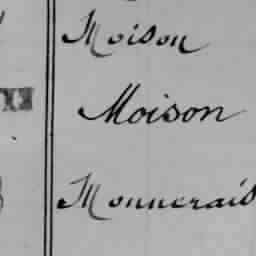 Moison
Moison
Monnerais